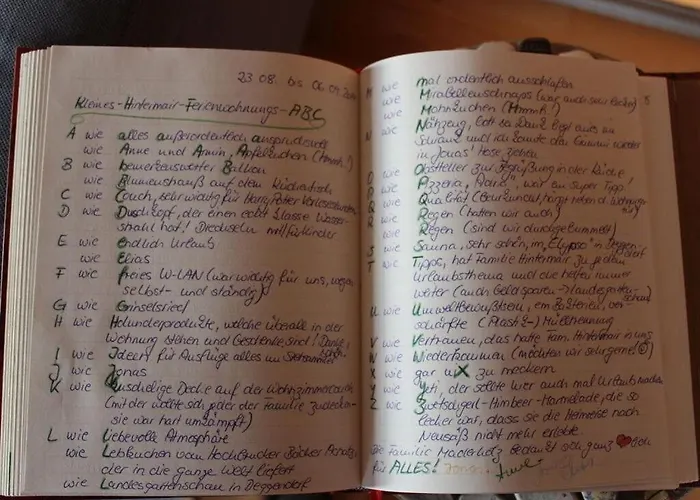 23.08. bis 06.09.
Kleines-Hintermair-Ferienwohnungs-ABC
A wie alles außerordentlich anspruchsvoll
wie Anne und Armin, Apfelkuchen (Mmmh!)
B wie bemerkenswerter Balkon
wie Blumenstrauß auf dem Küchentisch
C wie Couch, sehr wichtig für Harry Potter Vorlesestunden
D wie Duschkopf, der einen echt klasse Wasser-
strahl hat! Duschsein mit/für Kinder
E wie endlich Urlaub
wie Elias
F wie freies W-LAN (war wichtig für uns, wegen
selbst- und ständig)
G wie Grinselsried
H wie Holunderprodukte, welche überall in der
Wohnung stehen und Geschenke sind! Danke,
I wie Ideen für Ausflüge alles um
J wie Jonas
K wie kuschelige Decke auf der Wohnzimmercouch
(mit der wollte sich jeder der Familie zudecken-
sie war hart umkämpft)
L wie liebevolle Atmosphäre
wie Lebkuchen vom Bäcker
der in die ganze Welt liefert
wie Landesgartenschau in Deggendorf
M wie mal ordentlich ausschlafen
wie Mirabellenschnaps (war auch sehr lecker)
wie Mohnkuchen (Mmmh!)
N wie Nähzeug, Gott sei Dank liegt eines im
Schrank und ich konnte das Gummi wieder
in Jonas' Hose ziehen
O wie Obstteller zur Begrüßung in der Küche
P wie Pizzeria, war ein super Tipp!
Q wie Qualität
R wie Regen (hatten wir auch)
R wie Regen (sind wir durchgebummelt)
S wie Sauna, sehr schön, im "Elypso" in Deggendorf
T wie Tipps, hat Familie Hintermair zu jedem
Urlaubsthema und die helfen immer
weiter (auch Geld sparen -> Landesgarten-
schau)
U wie Umweltbewußtsein, ver-
schärfte (Plastik-) Mülltrennung
V wie Vertrauen, das hatte Fam. Hintermair in uns
W wie Wiederkommen (möchten wir sehr gerne ☺)
X wie gar nix zu meckern
Y wie Yeti, der sollte hier auch mal Urlaub machen
Z wie Zwetschgerl-Himbeer-Marmelade, die so
lecker war, dass sie die Heimreise nach
Neusäß nicht mehr erlebte.
Die Familie bedankt sich ganz ♥lich
für ALLES! Jonas